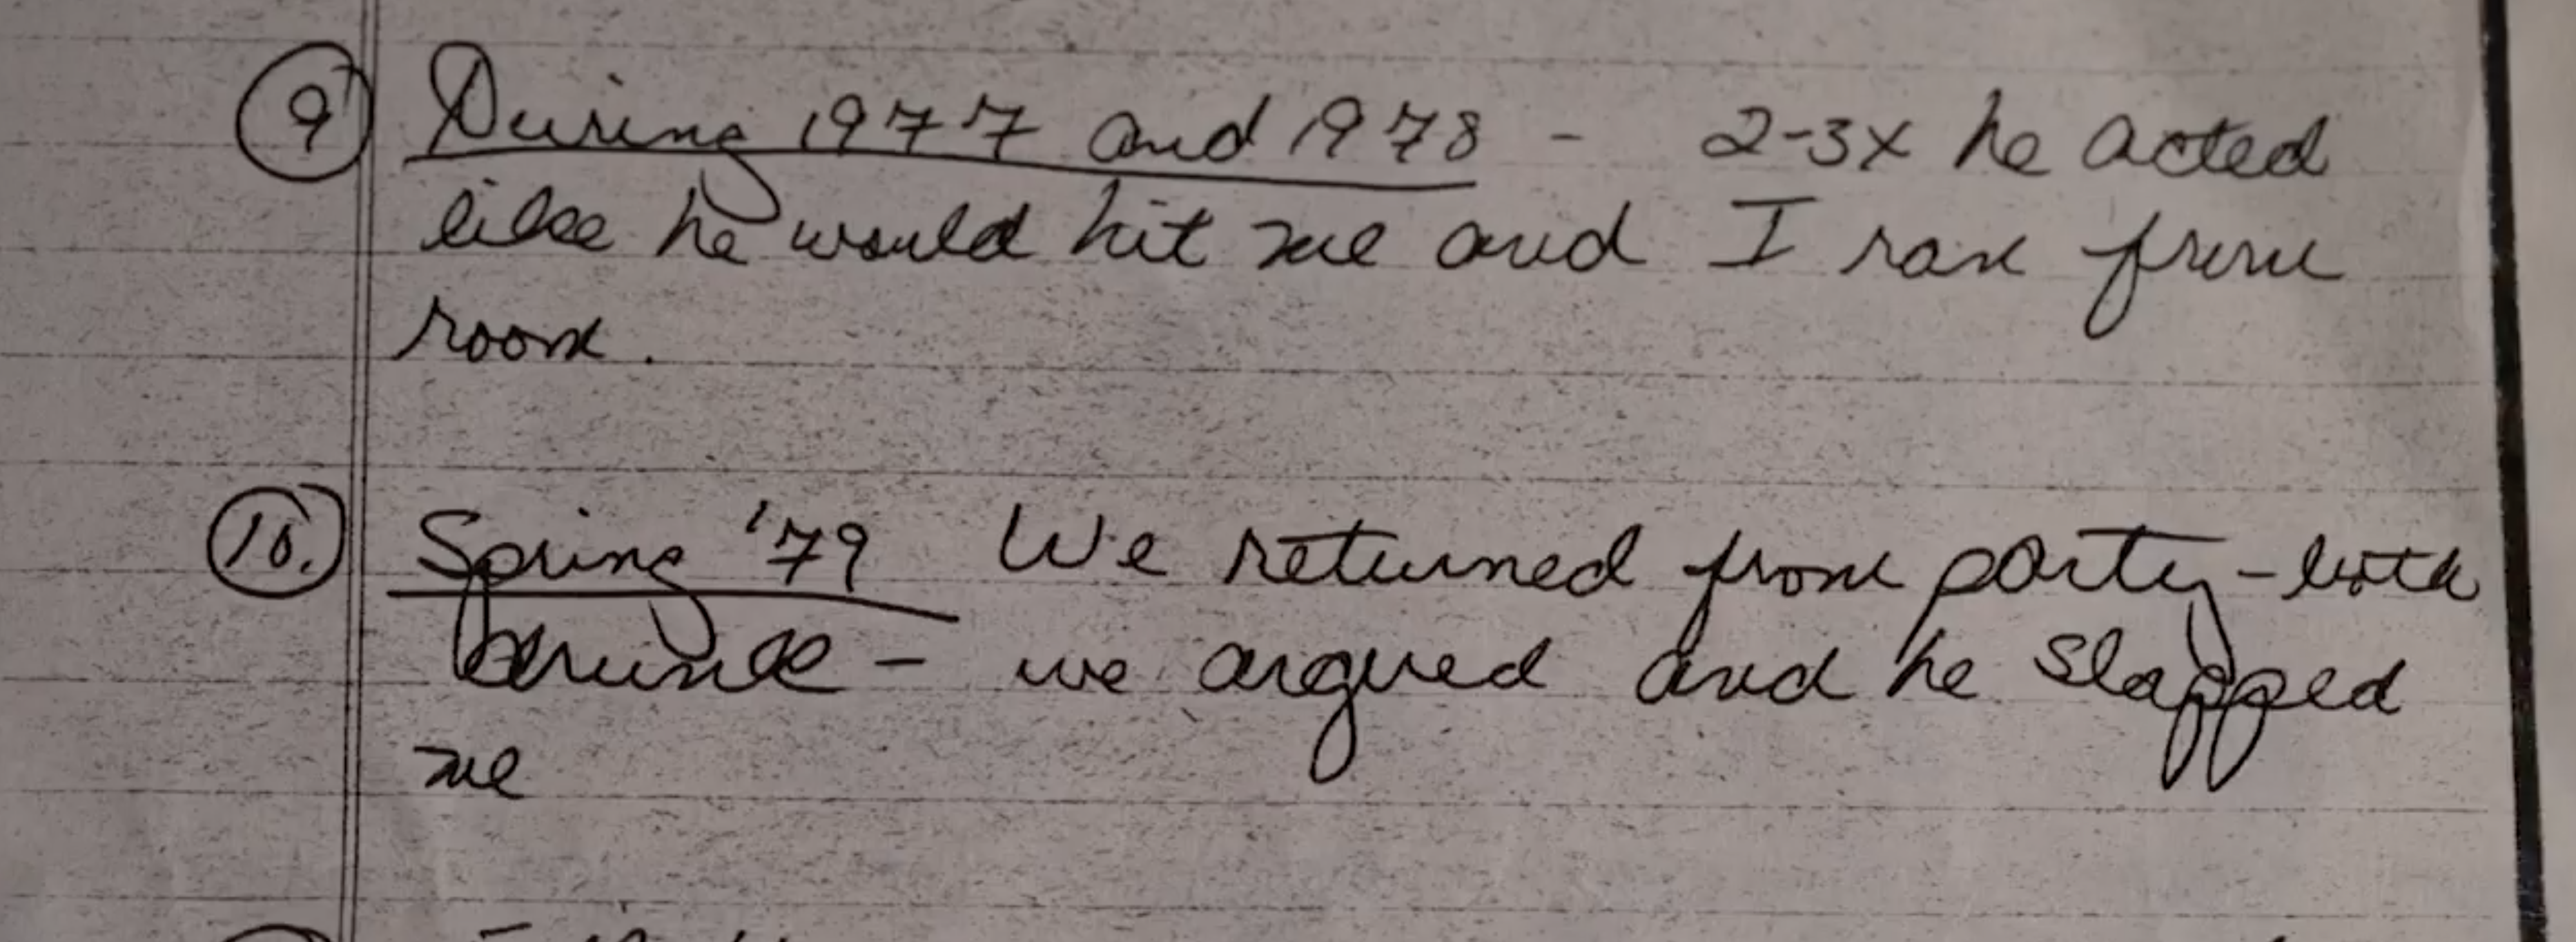 9 During 1977 and 1978 - 2-3x he acted
like he would hit me and I ran from
room.
10. Spring '79 We returned from party - both
drunk - we argued and he slapped
me